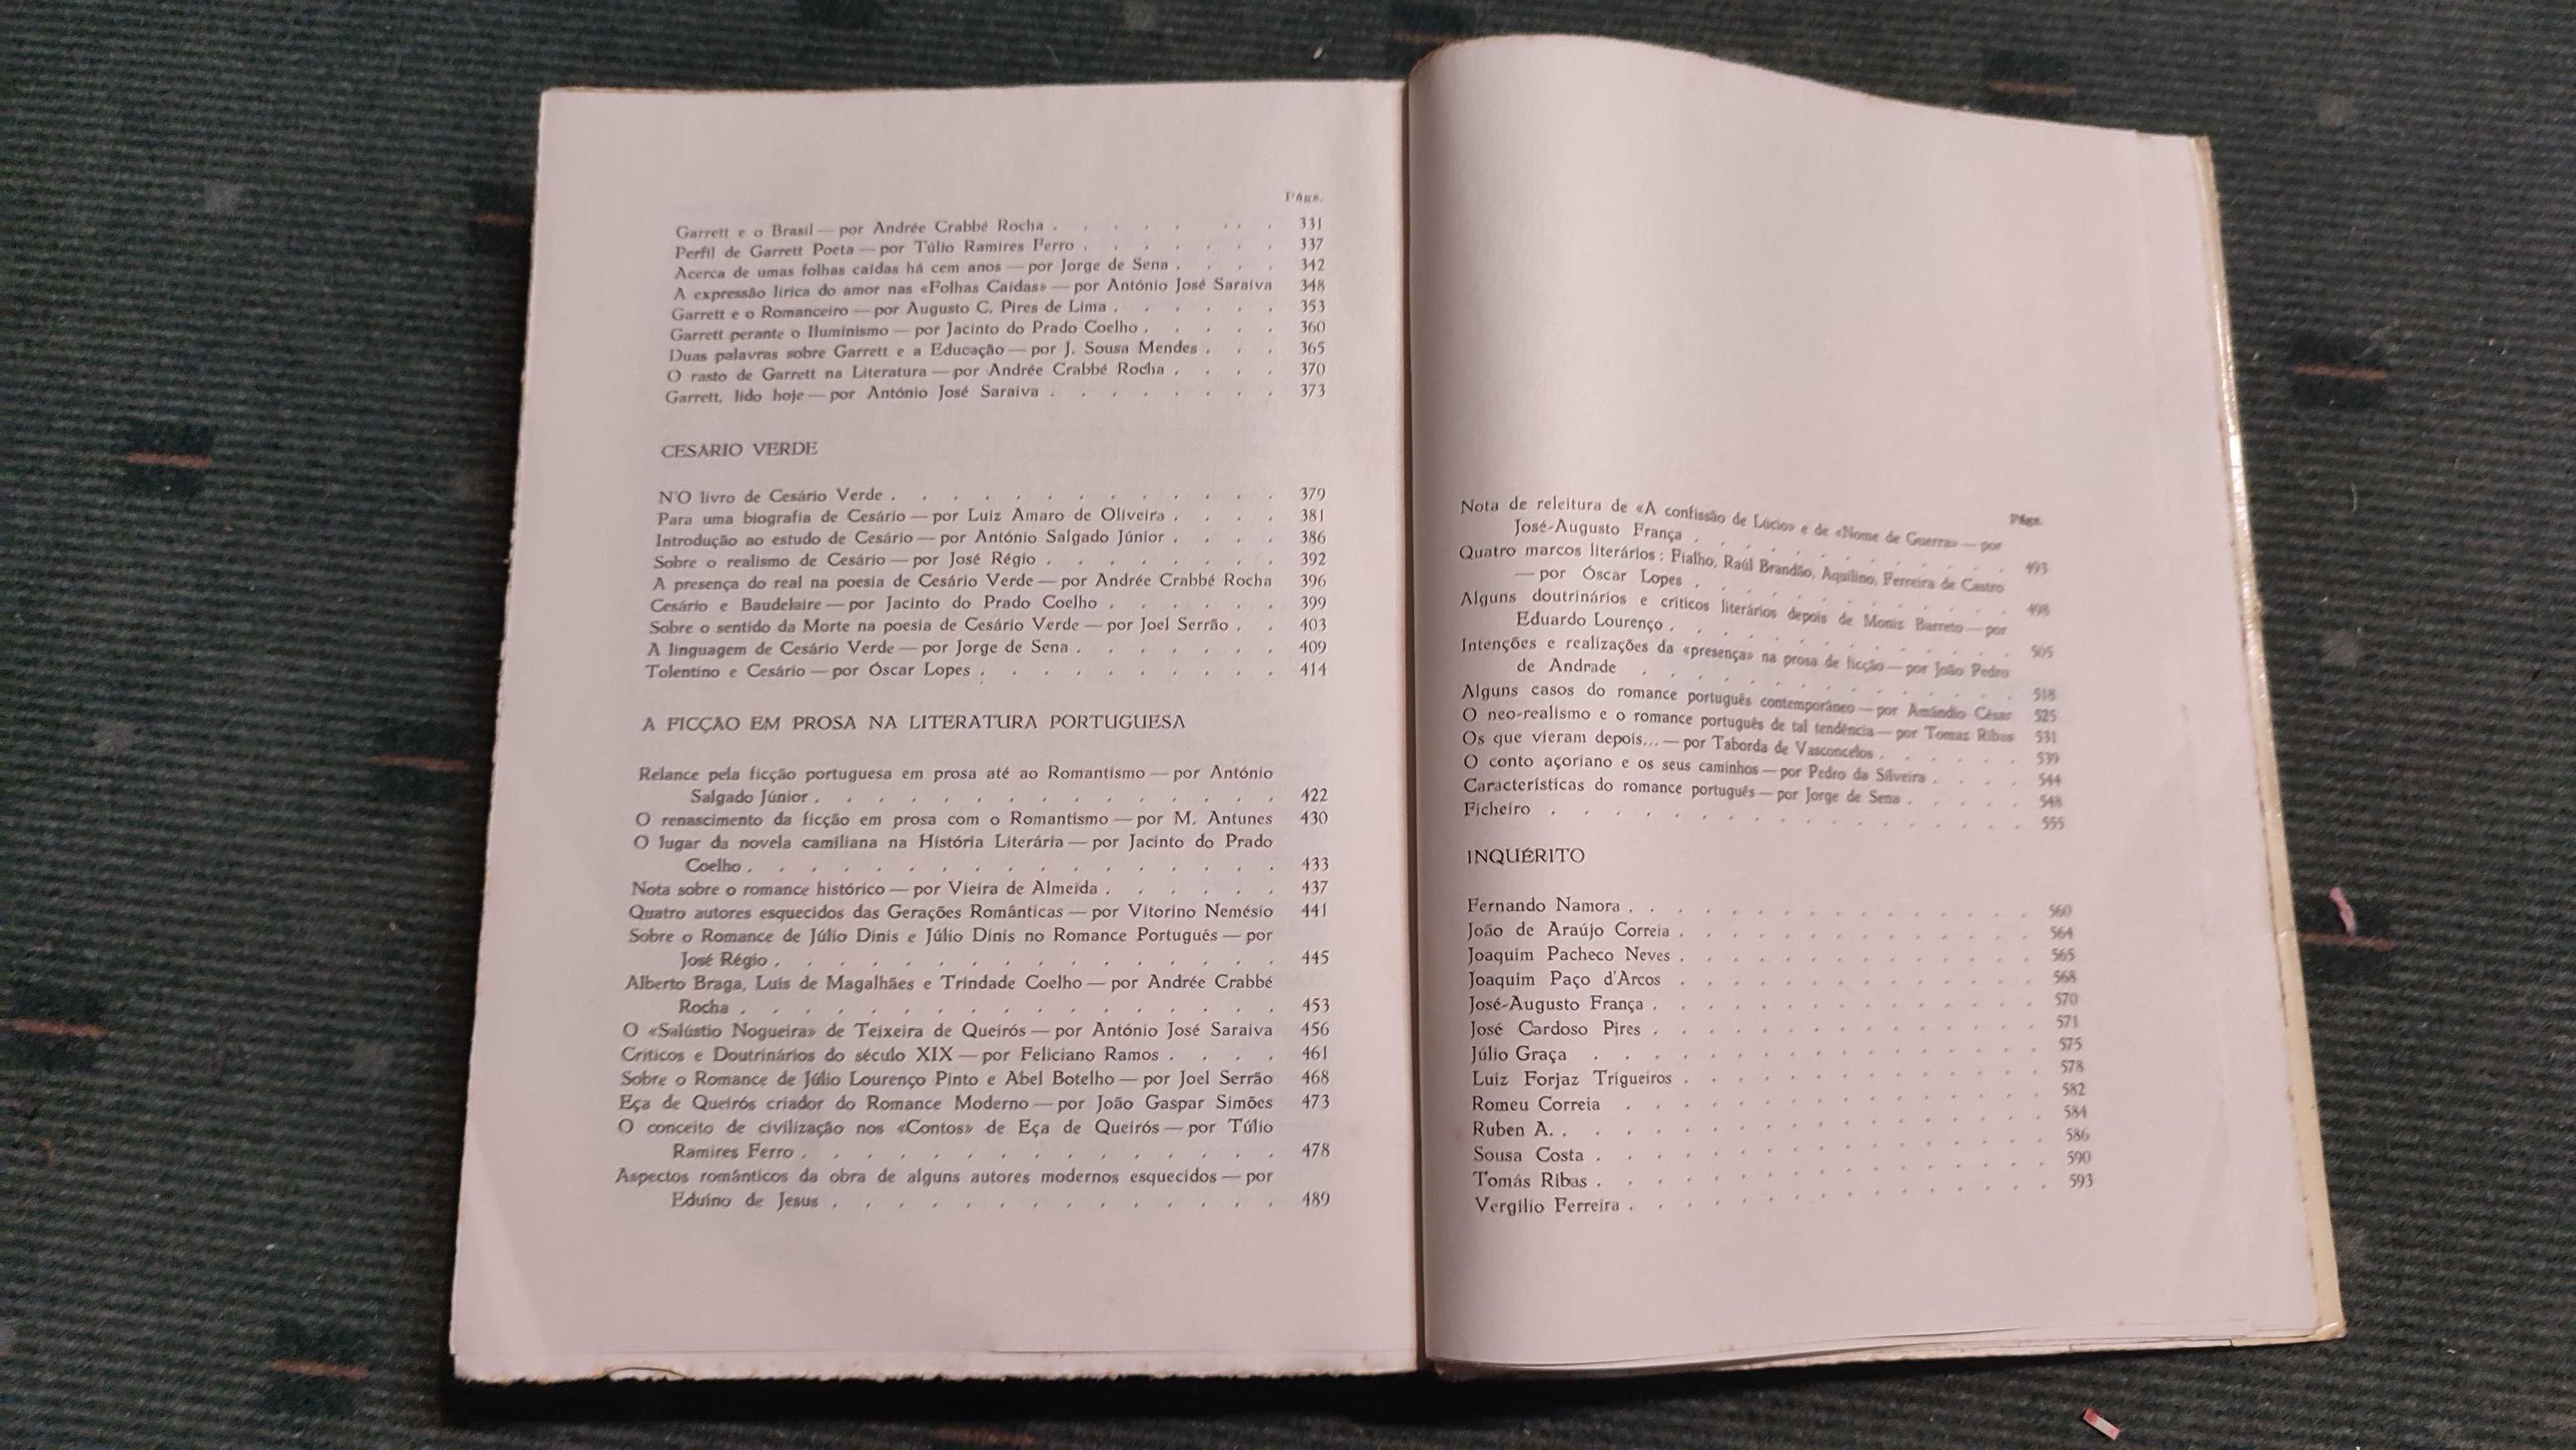 Págs.
Garrett e o Brasil — por Andrée Crabbé Rocha . . . . . . . . 331
Perfil de Garrett Poeta — por Túlio Ramires Ferro . . . . . . . 337
Acerca de umas folhas caídas há cem anos — por Jorge de Sena . . . . 342
A expressão lírica do amor nas «Folhas Caídas» — por António José Saraiva 348
Garrett e o Romanceiro — por Augusto C. Pires de Lima . . . . . . 353
Garrett perante o Iluminismo — por Jacinto do Prado Coelho . . . . . 360
Duas palavras sobre Garrett e a Educação — por J. Sousa Mendes . . . 365
O rasto de Garrett na Literatura — por Andrée Crabbé Rocha . . . . 370
Garrett, lido hoje — por António José Saraiva . . . . . . . . 373
CESARIO VERDE
N'O livro de Cesário Verde . . . . . . . . . . . . . 379
Para uma biografia de Cesário — por Luiz Amaro de Oliveira . . . . 381
Introdução ao estudo de Cesário — por António Salgado Júnior . . . . 386
Sobre o realismo de Cesário — por José Régio . . . . . . . . 392
A presença do real na poesia de Cesário Verde — por Andrée Crabbé Rocha 396
Cesário e Baudelaire — por Jacinto do Prado Coelho . . . . . . 399
Sobre o sentido da Morte na poesia de Cesário Verde — por Joel Serrão . . 403
A linguagem de Cesário Verde — por Jorge de Sena . . . . . . . 409
Tolentino e Cesário — por Óscar Lopes . . . . . . . . . . 414
A FICÇÃO EM PROSA NA LITERATURA PORTUGUESA
Relance pela ficção portuguesa em prosa até ao Romantismo — por António
Salgado Júnior . . . . . . . . . . . . . . . 422
O renascimento da ficção em prosa com o Romantismo — por M. Antunes 430
O lugar da novela camiliana na História Literária — por Jacinto do Prado
Coelho . . . . . . . . . . . . . . . . . 433
Nota sobre o romance histórico — por Vieira de Almeida . . . . . . 437
Quatro autores esquecidos das Gerações Românticas — por Vitorino Nemésio 441
Sobre o Romance de Júlio Dinis e Júlio Dinis no Romance Português — por
José Régio . . . . . . . . . . . . . . . . 445
Alberto Braga, Luís de Magalhães e Trindade Coelho — por Andrée Crabbé
Rocha . . . . . . . . . . . . . . . . . 453
O «Salústio Nogueira» de Teixeira de Queirós — por António José Saraiva 456
Críticos e Doutrinários do século XIX — por Feliciano Ramos . . . . 461
Sobre o Romance de Júlio Lourenço Pinto e Abel Botelho — por Joel Serrão 468
Eça de Queirós criador do Romance Moderno — por João Gaspar Simões 473
O conceito de civilização nos «Contos» de Eça de Queirós — por Túlio
Ramires Ferro . . . . . . . . . . . . . . . 478
Aspectos românticos da obra de alguns autores modernos esquecidos — por
Eduíno de Jesus . . . . . . . . . . . . . . 489
Págs.
Nota de releitura de «A confissão de Lúcio» e de «Nome de Guerra» — por
José-Augusto França . . . . . . . . . . . . 493
Quatro marcos literários: Fialho, Raúl Brandão, Aquilino, Ferreira de Castro
— por Óscar Lopes . . . . . . . . . . . . 498
Alguns doutrinários e críticos literários depois de Moniz Barreto — por
Eduardo Lourenço . . . . . . . . . . . . . 505
Intenções e realizações da «presença» na prosa de ficção — por João Pedro
de Andrade . . . . . . . . . . . . . . 518
Alguns casos do romance português contemporâneo — por Amândio César 525
O neo-realismo e o romance português de tal tendência — por Tomaz Ribas 531
Os que vieram depois... — por Taborda de Vasconcelos . . . . . . 539
O conto açoriano e os seus caminhos — por Pedro da Silveira . . . . 544
Características do romance português — por Jorge de Sena . . . . . 548
Ficheiro . . . . . . . . . . . . . . . . . 555
INQUÉRITO
Fernando Namora . . . . . . . . . . . . . . . 560
João de Araújo Correia . . . . . . . . . . . . . 564
Joaquim Pacheco Neves . . . . . . . . . . . . . 565
Joaquim Paço d'Arcos . . . . . . . . . . . . . 568
José-Augusto França . . . . . . . . . . . . . . 570
José Cardoso Pires . . . . . . . . . . . . . . 571
Júlio Graça . . . . . . . . . . . . . . . . 575
Luiz Forjaz Trigueiros . . . . . . . . . . . . . 578
Romeu Correia . . . . . . . . . . . . . . . 582
Ruben A. . . . . . . . . . . . . . . . . . 584
Sousa Costa . . . . . . . . . . . . . . . . 586
Tomás Ribas . . . . . . . . . . . . . . . . 590
Vergílio Ferreira . . . . . . . . . . . . . . . 593